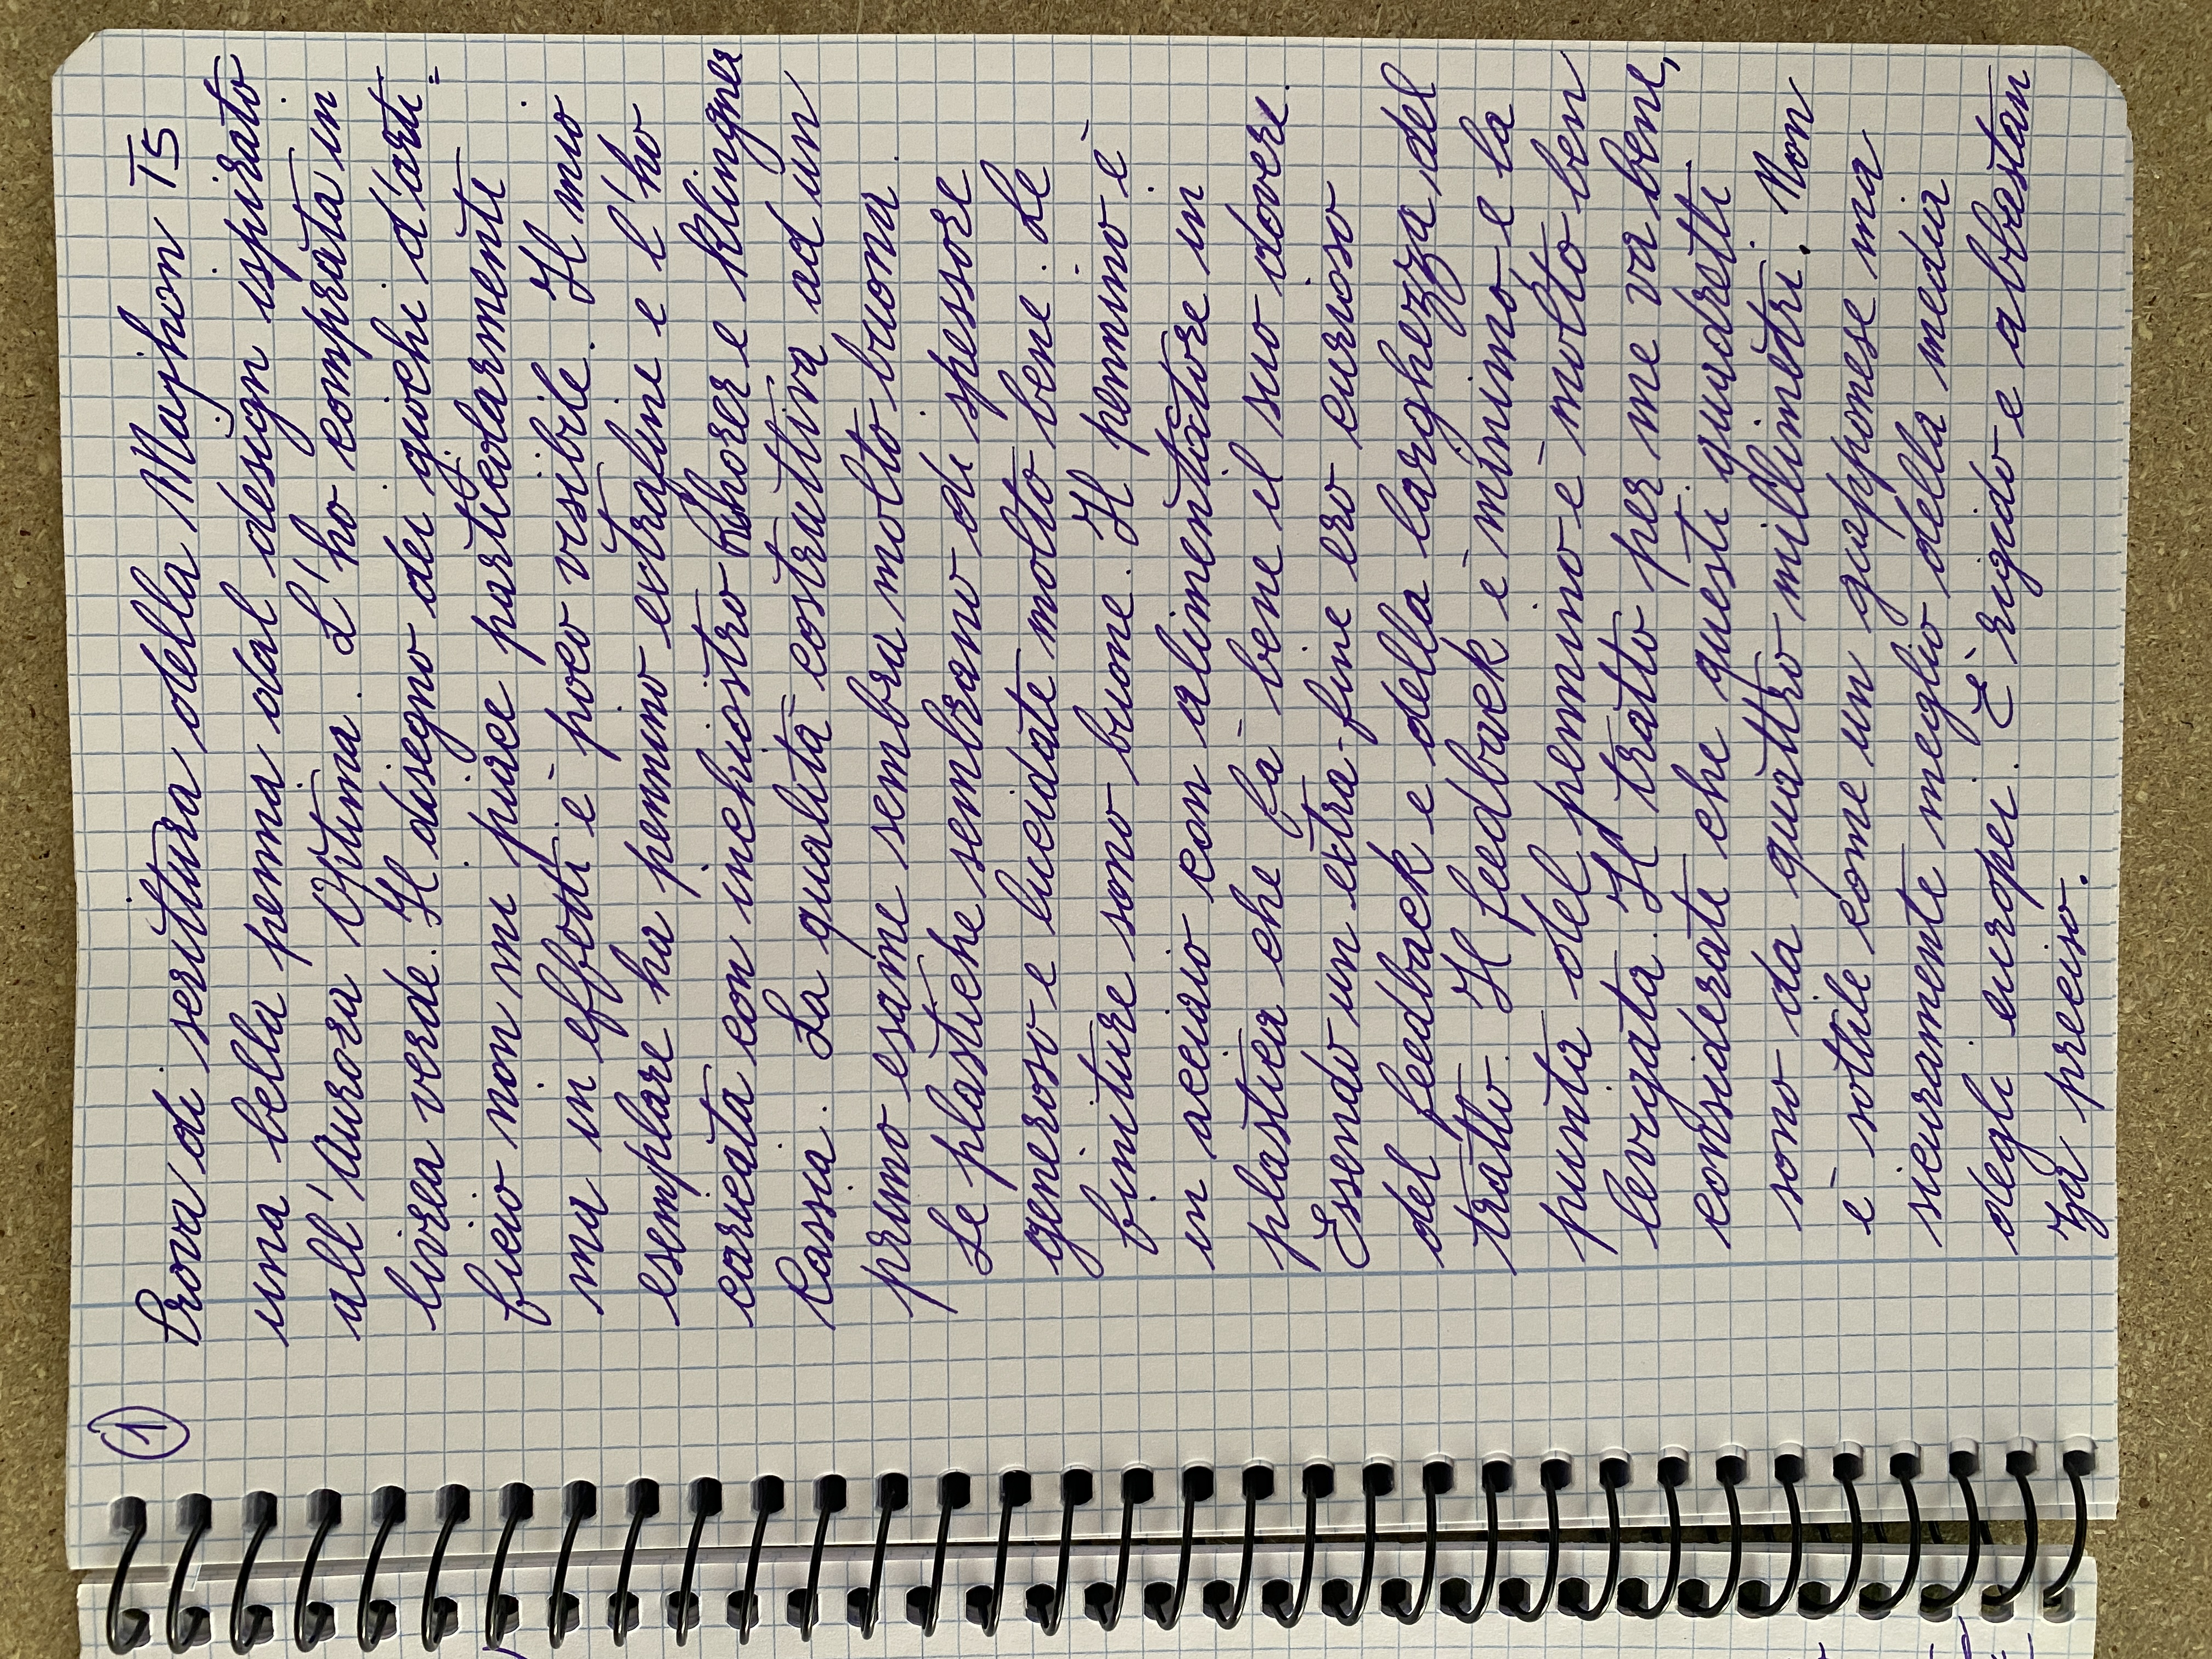 ①
Prova di scrittura della Majhon T5
una bella penna dal design ispirato
all'Aurora Optima. L'ho comprata in
livrea verde. Il disegno dei giochi d'arti=
ficio non mi piace particolarmente
ma in effetti è poco visibile. Il mio
esemplare ha pennino extrafine e l'ho
caricata con inchiostro Rohrer e Klingner
Cassia. La qualità costruttiva ad un
primo esame sembra molto buona.
Le plastiche sembrano di spessore
generoso e lucidate molto bene. Le
finiture sono buone. Il pennino è
in acciaio con alimentatore in
plastica che fà bene il suo dovere.
Essendo un extra-fine ero curioso
del feedback e della larghezza del
tratto. Il feedback è minimo e la
punta del pennino è molto ben
levigata. Il tratto per me va bene,
considerate che questi quadretti
sono da quattro millimetri. Non
è sottile come un giapponese ma
sicuramente meglio della media
degli europei. È rigido e abbastan
za preciso.